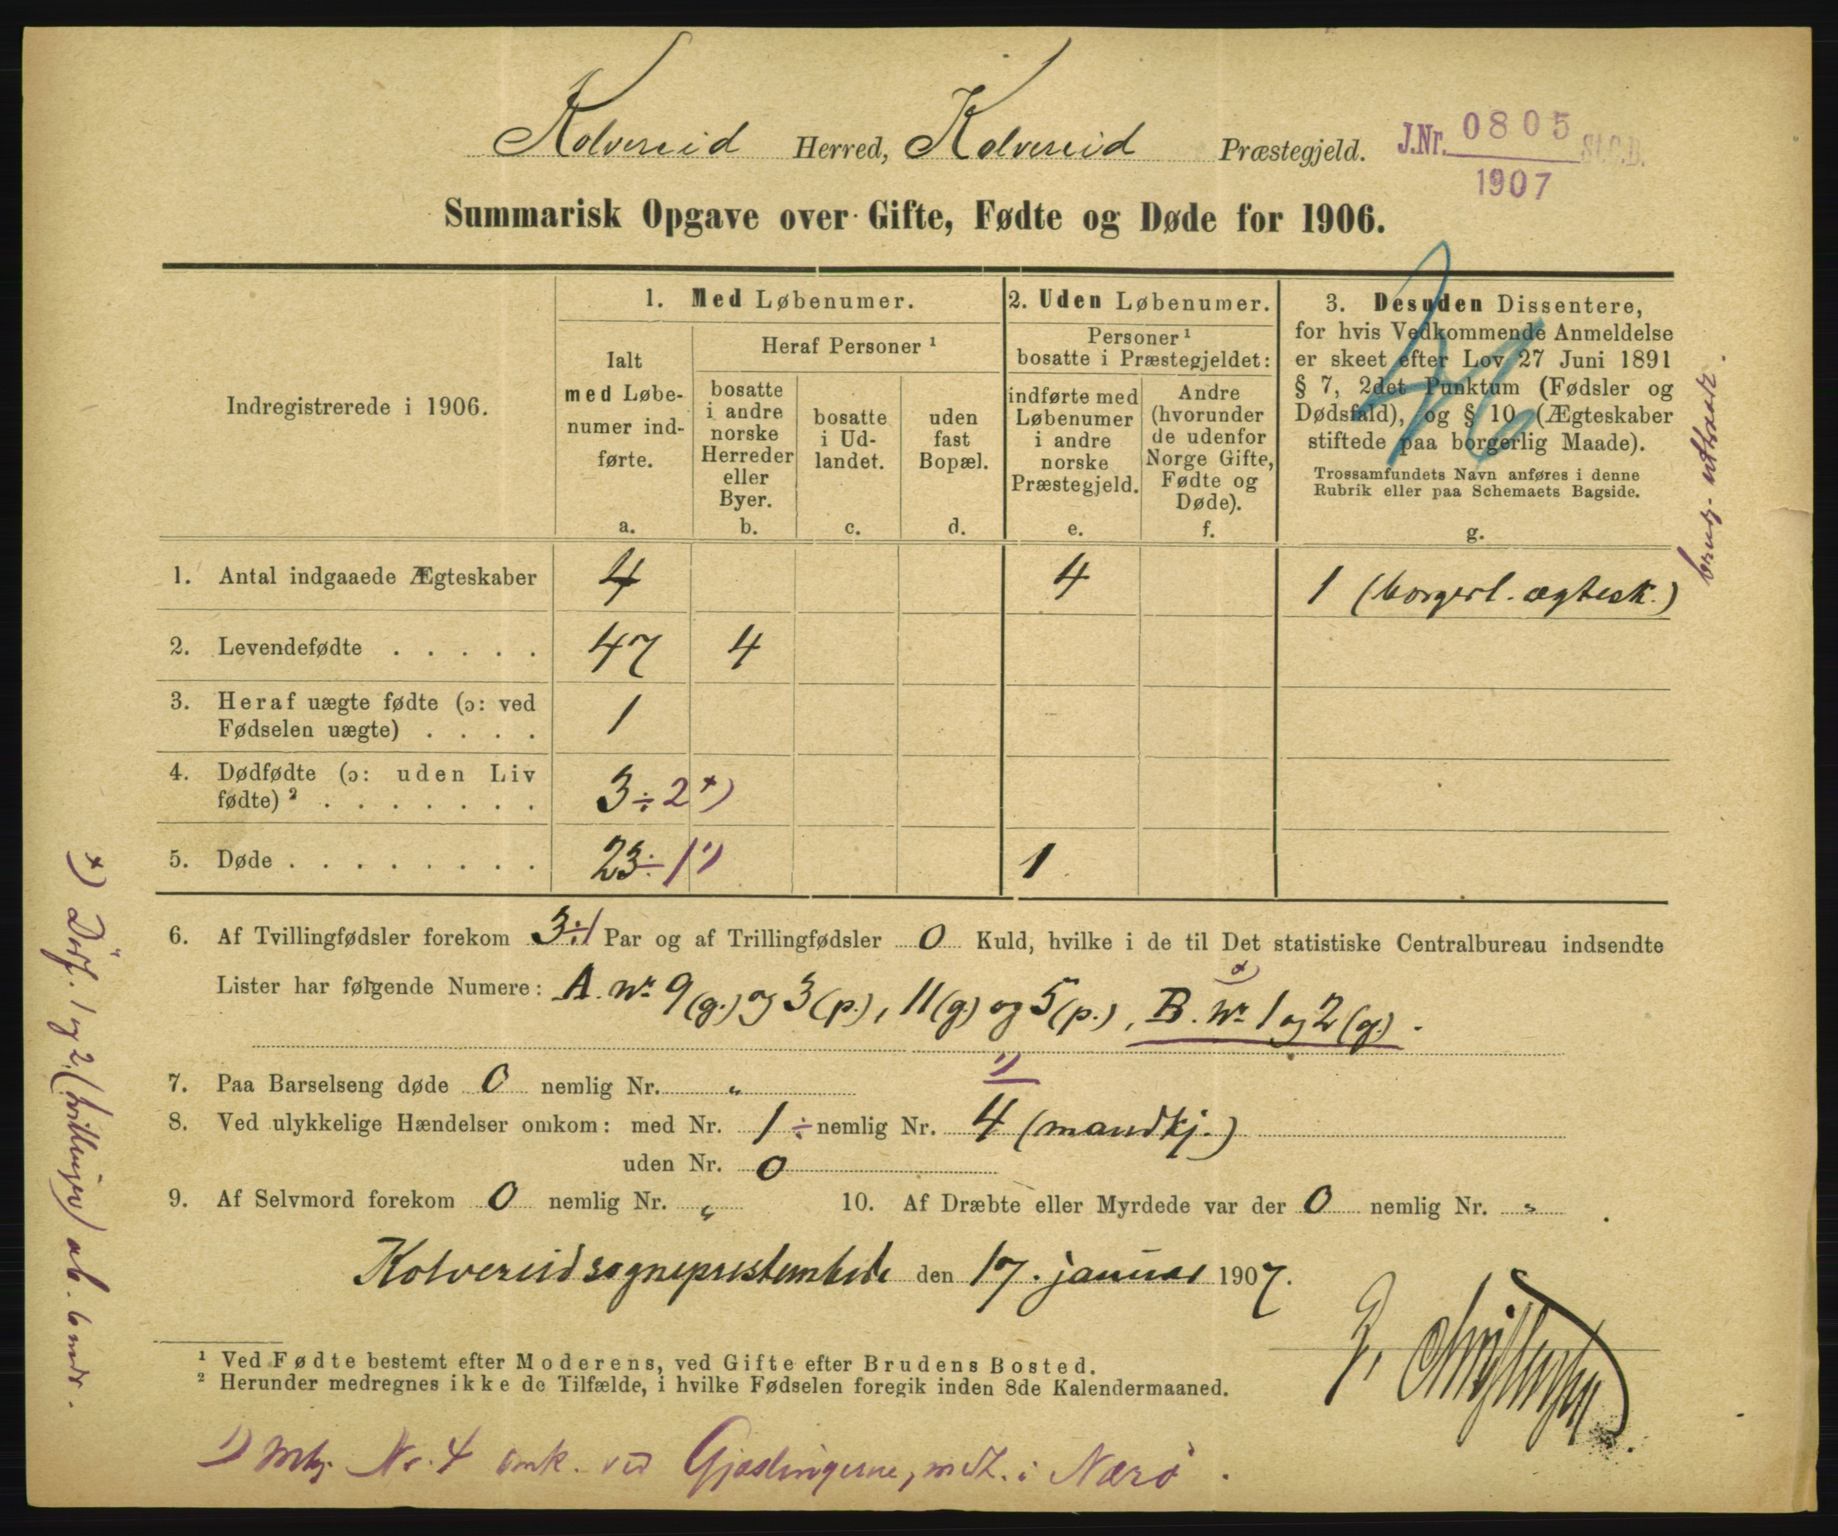 Kolvereid Herred, Kolvereid Præstegjeld.
J.Nr. 0805 St.C.B.
1907
Summarisk Opgave over Gifte, Fødte og Døde for 1906.
Indregistrerede i 1906.
1. Med Løbenumer.
Ialt
med Løbe-
numer ind-
førte.
a.
Heraf Personer ¹
bosatte
i andre
norske
Herreder
eller
Byer.
b.
bosatte
i Ud-
landet.
c.
uden
fast
Bopæl.
d.
2. Uden Løbenumer.
Personer ¹
bosatte i Præstegjeldet:
indførte med
Løbenumer
i andre
norske
Præstegjeld.
e.
Andre
(hvorunder
de udenfor
Norge Gifte,
Fødte og
Døde).
f.
3. Desuden Dissentere,
for hvis Vedkommende Anmeldelse
er skeet efter Lov 27 Juni 1891
§ 7, 2det Punktum (Fødsler og
Dødsfald), og § 10 (Ægteskaber
stiftede paa borgerlig Maade).
Trossamfundets Navn anføres i denne
Rubrik eller paa Schemaets Bagside.
g.
1. Antal indgaaede Ægteskaber 4 4 1 (borgerl. ægtesk.)
2. Levendefødte . . . . . 47 4
3. Heraf uægte fødte (ɔ: ved
Fødselen uægte) . . . . 1
4. Dødfødte (ɔ: uden Liv
fødte) ² . . . . . . . 3÷2 ˣ)
5. Døde . . . . . . . . 23÷1 ¹) 1
6. Af Tvillingfødsler forekom 3÷1 Par og af Trillingfødsler 0 Kuld, hvilke i de til Det statistiske Centralbureau indsendte
Lister har følgende Numere: A. Nr 9 (g.) og 3 (p.), 11 (g) og 5 (p.), B. Nr 1 og 2 (g.).
x)
7. Paa Barselseng døde 0 nemlig Nr. „
¹)
8. Ved ulykkelige Hændelser omkom: med Nr. 1 ÷ nemlig Nr. 4 (mandkj.)
uden Nr. 0
9. Af Selvmord forekom 0 nemlig Nr. „ 10. Af Dræbte eller Myrdede var der 0 nemlig Nr. „ .
Kolvereid sogneprestembede den 17. januar 1907.
¹ Ved Fødte bestemt efter Moderens, ved Gifte efter Brudens Bosted.
² Herunder medregnes ikke de Tilfælde, i hvilke Fødselen foregik inden 8de Kalendermaaned.
¹) Mkj. Nr. 4 omk. ved Gjæslingerne, medt. i Nærø.
x) Dødf. 1 og 2 (tvillinger) ab. 6 mdr.